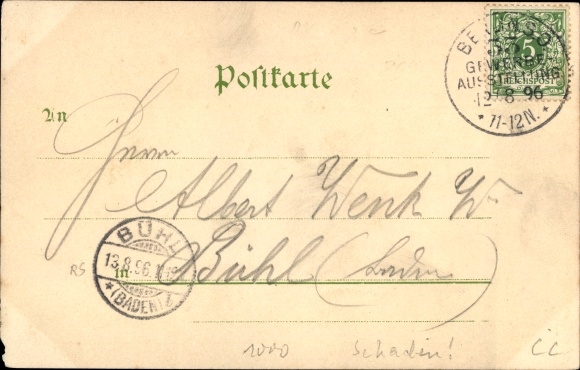 Postkarte
5
REICHSPOST
GEWERBE
AUSSTELLUNG
12 8 96
* 11-12N. *
An
Herrn
Albert Wenk W.
BÜHL
13.8.96.
*(BADEN)*
RS
in Bühl (Baden)
1000 Schaden! CC